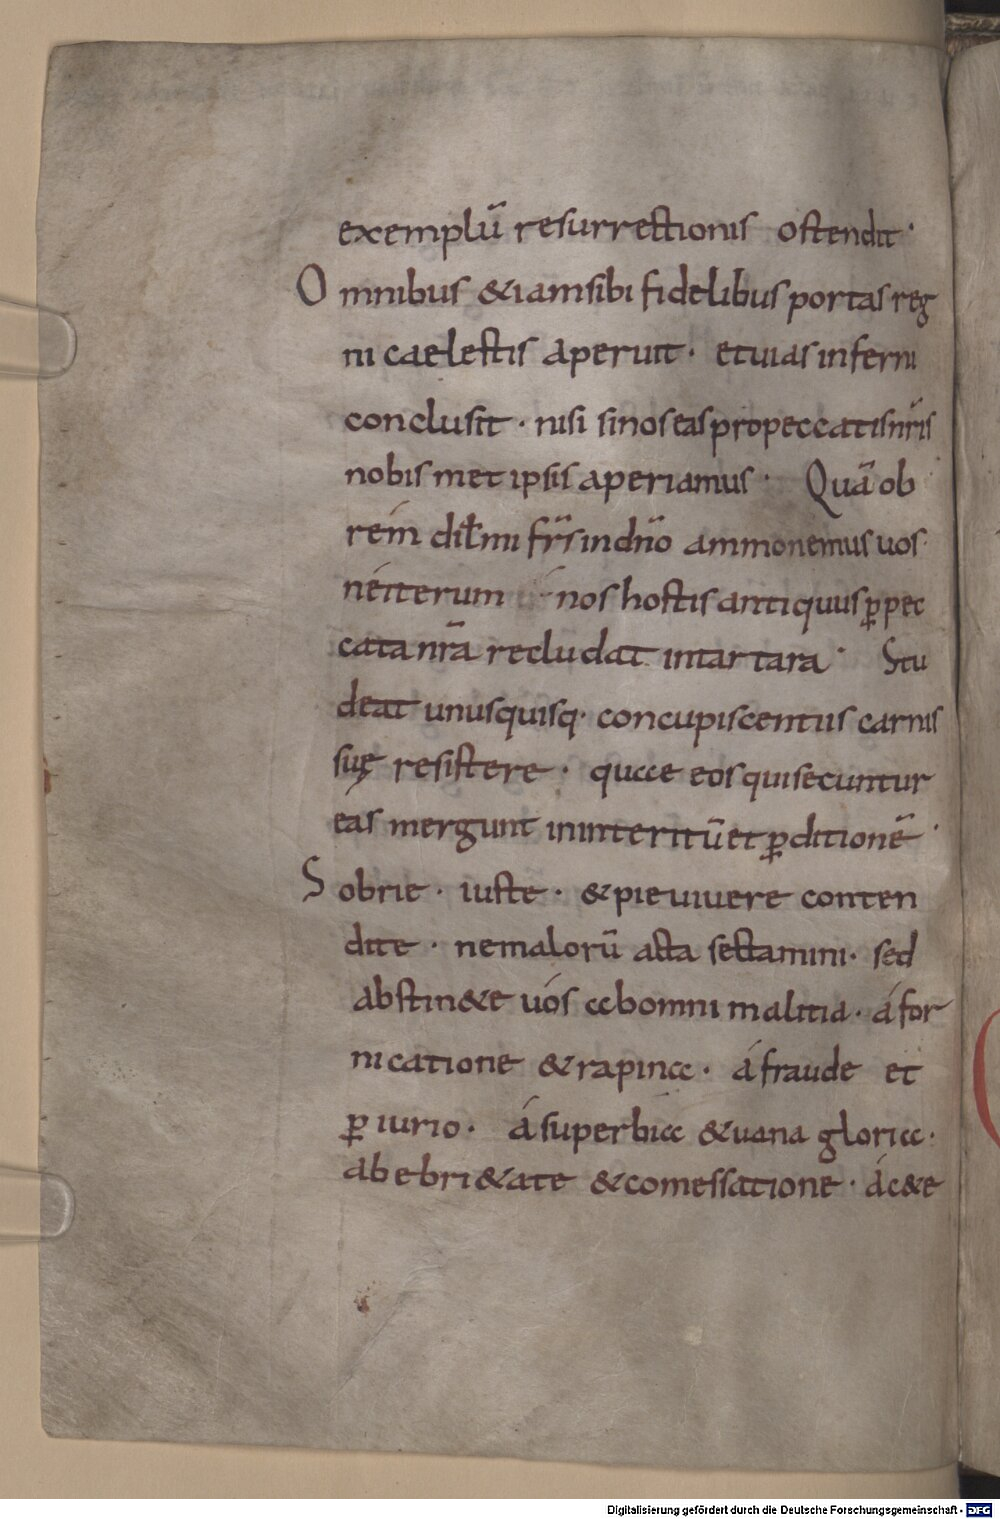 exemplū resurrectionis ostendit ·
Omnibus &iam sibi fidelibus portas reg
ni caelestis aperuit · et uias inferni
conclusit · nisi si nos eas pro peccatis nr̄is
nobis met ipsis aperiamus · Quā ob
rem dil̄mi fr̄s in dn̄o ammonemus uos
ne iterum nos hostis antiquus ꝑ pec
cata nr̄a recludat in tartara · Stu
deat unusquisq· concupiscentiis carnis
suę resistere · quae eos qui secuntur
eas mergunt in interitū et ꝑditionē ·
Sobrie · iuste · & pie uiuere conten
dite · ne malorū acta sectamini · sed
abstin&e uós ab omni malitia · á for
nicatione & rapina · á fraude et
ꝑiurio · á superbia & uana gloria ·
ab ebri&ate & comessatione · ác&e
Digitalisierung gefördert durch die Deutsche Forschungsgemeinschaft - DFG